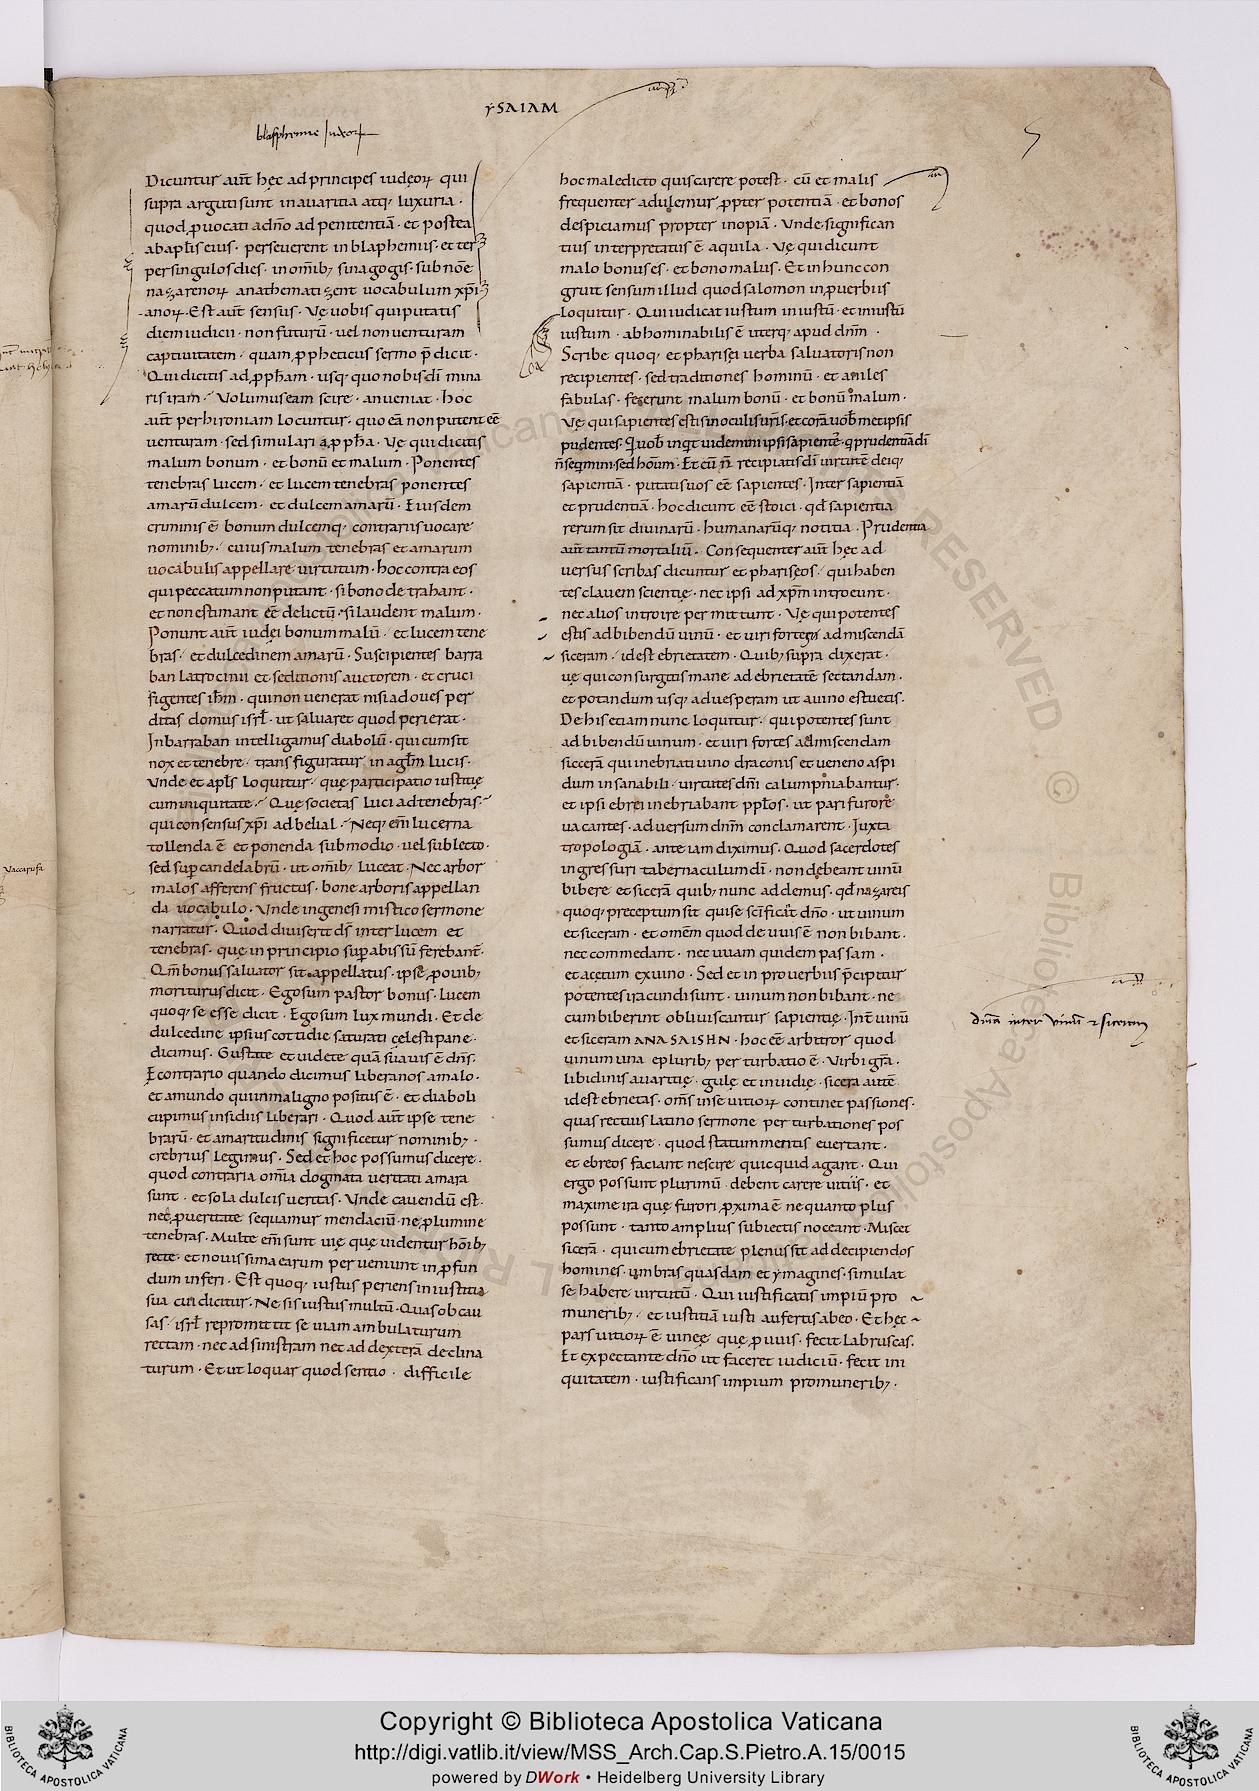 YSAIAM
blasphemie Iudeoꝝ
5
Dicuntur aut̄ hęc ad principes iudęoꝝ qui
supra arguti sunt in auaritia atq; luxuria ·
quod ꝓuocati a dn̄o ad penitentiā · et postea
ab apłis eius · perseuerent in blaphemiis · et ter
per singulos dies · in om̄ib; sinagogis · sub nōe
nazarenoꝝ anathematizent uocabulum xp̄i
anoꝝ · Est aut̄ sensus · Vę uobis qui putatis
diem iudicii · non futurū · uel non uenturam
captiuitatem · quam ꝓpheticus sermo p̄dicit ·
Qui dicitis ad ꝓph̄am · usq; quo nobis dī mina
ris iram · Volumus eam scire · an ueniat · hoc
aut̄ per hironiam locuntur · quo eā non putent eē
uenturam · sed simulari a ꝓph̄a · Vę qui dicitis
malum bonum · et bonū et malum · Ponentes
tenebras lucem · et lucem tenebras ponentes
amarū dulcem · et dulcem amarū · Eiusdem
criminis ē bonum dulcemq; contrariis uocare
nominib; · cuius malum tenebras et amarum
uocabulis appellare uirtutum · hoc contra eos
qui peccatum non putant · si bono detrahant ·
et non estimant eē delictū · si laudent malum ·
Ponunt aut̄ iudęi bonum malū · et lucem tene
bras · et dulcedinem amarū · Suscipientes barra
ban latrocinii et seditionis auctorem · et cruci
figentes ih̄m · qui non uenerat nisi ad oues per
ditas domus isrł · ut saluaret quod perierat ·
In barraban intelligamus diabolū · qui cum sit
nox et tenebre · transfiguratur in agłm lucis ·
Vnde et apłs loquitur · quę participatio iustitię
cum iniquitate · Quę societas luci ad tenebras ·
qui consensus xp̄i ad belial · Neq; em̄ lucerna
tollenda ē et ponenda sub modio · uel sub lecto ·
sed suꝑ candelabrū · ut om̄ib; luceat · Nec arbor
malos afferens fructus · bone arboris appellan
da uocabulo · Vnde in genesi mistico sermone
narratur · Quod diuiserit ds̄ inter lucem et
tenebras · quę in principio suꝑ abissū ferebant̄ ·
Qm̄ bonus saluator sit appellatus · ipse ꝓ ouib;
moriturus dicit · Ego sum pastor bonus · Lucem
quoq; se esse dicit · Ego sum lux mundi · Et de
dulcedine ipsius cottidie saturati cęlesti pane ·
dicimus · Gustate et uidete quā suauis ē dn̄s ·
E contrario quando dicimus libera nos a malo ·
et a mundo qui in maligno positus ē · et diaboli
cupimus insidiis liberari · Quod aut̄ ipse tene
brarū · et amaritudinis significetur nominib; ·
crebrius legimus · Sed et hoc possumus dicere ·
quod contraria om̄ia dogmata ueritati amara
sunt · et sola dulcis ueritas · Vnde cauendū est ·
ne ꝓ ueritate sequamur mendaciū · ne ꝓ lumine
tenebras · Multe em̄ sunt uię quę uidentur hōib;
recte · et nouissima earum perueniunt in ꝓfun
dum inferi · Est quoq; iustus periens in iustitia
sua cui dicitur · Ne sis iustus multū · Quas ob cau
sas · isrł repromittit se uiam ambulaturum
rectam · nec ad sinistram nec ad dexterā declina
turum · Et ut loquar quod sentio · difficile
hoc maledicto quis carere potest · cū et malis
frequenter adulemur ꝓpter potentiā · et bonos
despiciamus propter inopiā · Vnde significan
tius interpretatus ē aquila · Vę qui dicunt
malo bonus es · et bono malus · Et in hunc con
gruit sensum illud quod salomon in ꝓuerbiis
loquitur · Qui iudicat iustum iniustū · et iniustū
iustum · abhominabilis ē uterq; apud dn̄m ·
Scribe quoq; et pharisei uerba saluatoris non
recipientes · sed traditiones hominū · et aniles
fabulas · fecerunt malum bonū · et bonū malum ·
Vę qui sapientes estis in oculis ur̄is · et corā uob̄ metipsis
prudentes ·
sapientiā · putatis uos eē sapientes · Inter sapientiā
et prudentiā · hoc dicunt eē stoici · qd̄ sapientia
rerum sit diuinarū · humanarūq; notitia · Prudentia
aut̄ tantū mortaliū · Consequenter aut̄ hęc ad
uersus scribas dicuntur et phariseos · qui haben
tes clauem scientię · nec ipsi ad xp̄m introeunt ·
nec alios introire permittunt · Vę qui potentes
estis ad bibendū uinū · et uiri fortes ad miscendā
siceram · id est ebrietatem · Quib; supra dixerat ·
uę qui consurgitis mane ad ebrietatē sectandam ·
et potandum usq; ad uesperam ut a uino estuetis ·
De his etiam nunc loquitur · qui potentes sunt
ad bibendū uinum · et uiri fortes ad miscendam
sicceram qui inebriati uino draconis et ueneno aspi
dum insanabili · uirtutes dn̄i calumpniabantur ·
et ipsi ebrei inebriabant ppłos · ut pari furore
uacantes · aduersum dn̄m conclamarent · Iuxta
tropologiā · ante iam diximus · Quod sacerdotes
ingressuri tabernaculum dī · non debeant uinū
bibere et sicerā quib; nunc addemus · qd̄ nazareis
quoq; preceptum sit qui se sc̄ificāt dn̄o · ut uinum
et siceram · et omēm quod de uuis ē non bibant ·
nec commedant · nec uuam quidem passam ·
et acętum ex uino · Sed et in prouerbiis p̄cipitur
potentes iracundi sunt · uinum non bibant · ne
cum biberint obliuiscantur sapientię · Int̄ uinū
et siceram ANASAISHN · hoc eē arbitror quod
uinum una e plurib; perturbatio ē · Verbi gr̄a ·
libidinis auaritię · gulę et inuidię · sicera autē
id est ebrietas · om̄s in se uitioꝝ continet passiones ·
quas rectius latino sermone perturbationes pos
sumus dicere · quod statum mentis euertant ·
et ebreos faciant nescire quicquid agant · Qui
ergo possunt plurimū debent carere uitiis · et
maxime ira quę furori ꝓxima ē ne quanto plus
possunt · tanto amplius subiectis noceant · Miscet
sicerā · qui cum ebrietate plenus sit ad decipiendos
homines · umbras quasdam et ymagines · simulat
se habere uirtutū · Qui iustificatis impiū pro
munerib; · et iustitiā iusti aufertis ab eo · Et hęc
pars uitioꝝ ē uineę quę ꝓ uuis · fecit labruscas ·
Et expectante dn̄o ut faceret iudiciū · fecit ini
quitatem · iustificans impium pro munerib; ·
inter uinum et siceram
Vaccarusa
Copyright © Biblioteca Apostolica Vaticana
http://digi.vatlib.it/view/MSS_Arch.Cap.S.Pietro.A.15/0015
powered by DWork • Heidelberg University Library
BIBLIOTECA APOSTOLICA VATICANA
BIBLIOTECA APOSTOLICA VATICANA